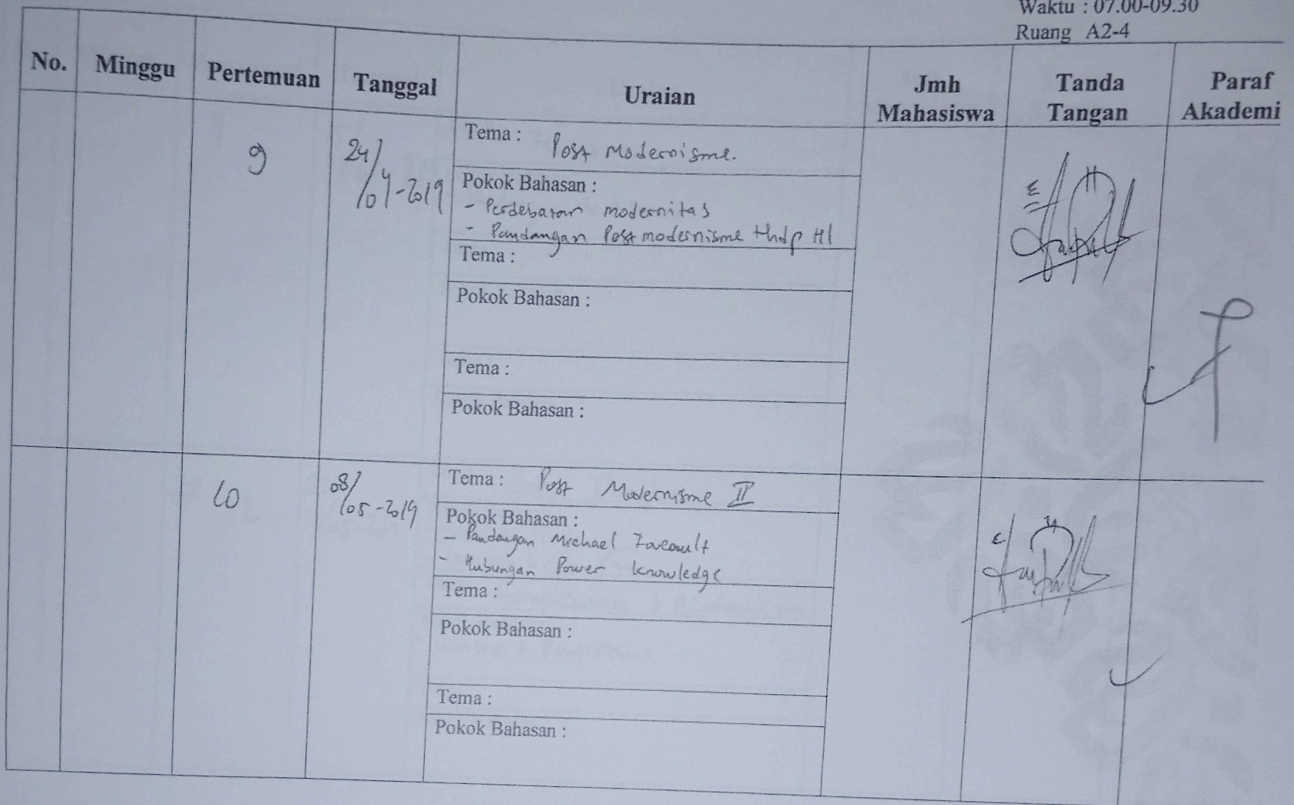 Waktu : 07.00-09.30
Ruang A2-4
No. Minggu Pertemuan Tanggal Uraian Jmh Mahasiswa Tanda Tangan Paraf Akademi
9 24/04-2019 Tema : Post Modernisme.
Pokok Bahasan :
- Perdebatan modernitas
- Pandangan Postmodernisme thdp HI
Tema :
Pokok Bahasan :
Tema :
Pokok Bahasan :
10 08/05-2019 Tema : Post Modernisme II
Pokok Bahasan :
- Pandangan Michael Foucault
- Hubungan Power knowledge
Tema :
Pokok Bahasan :
Tema :
Pokok Bahasan :